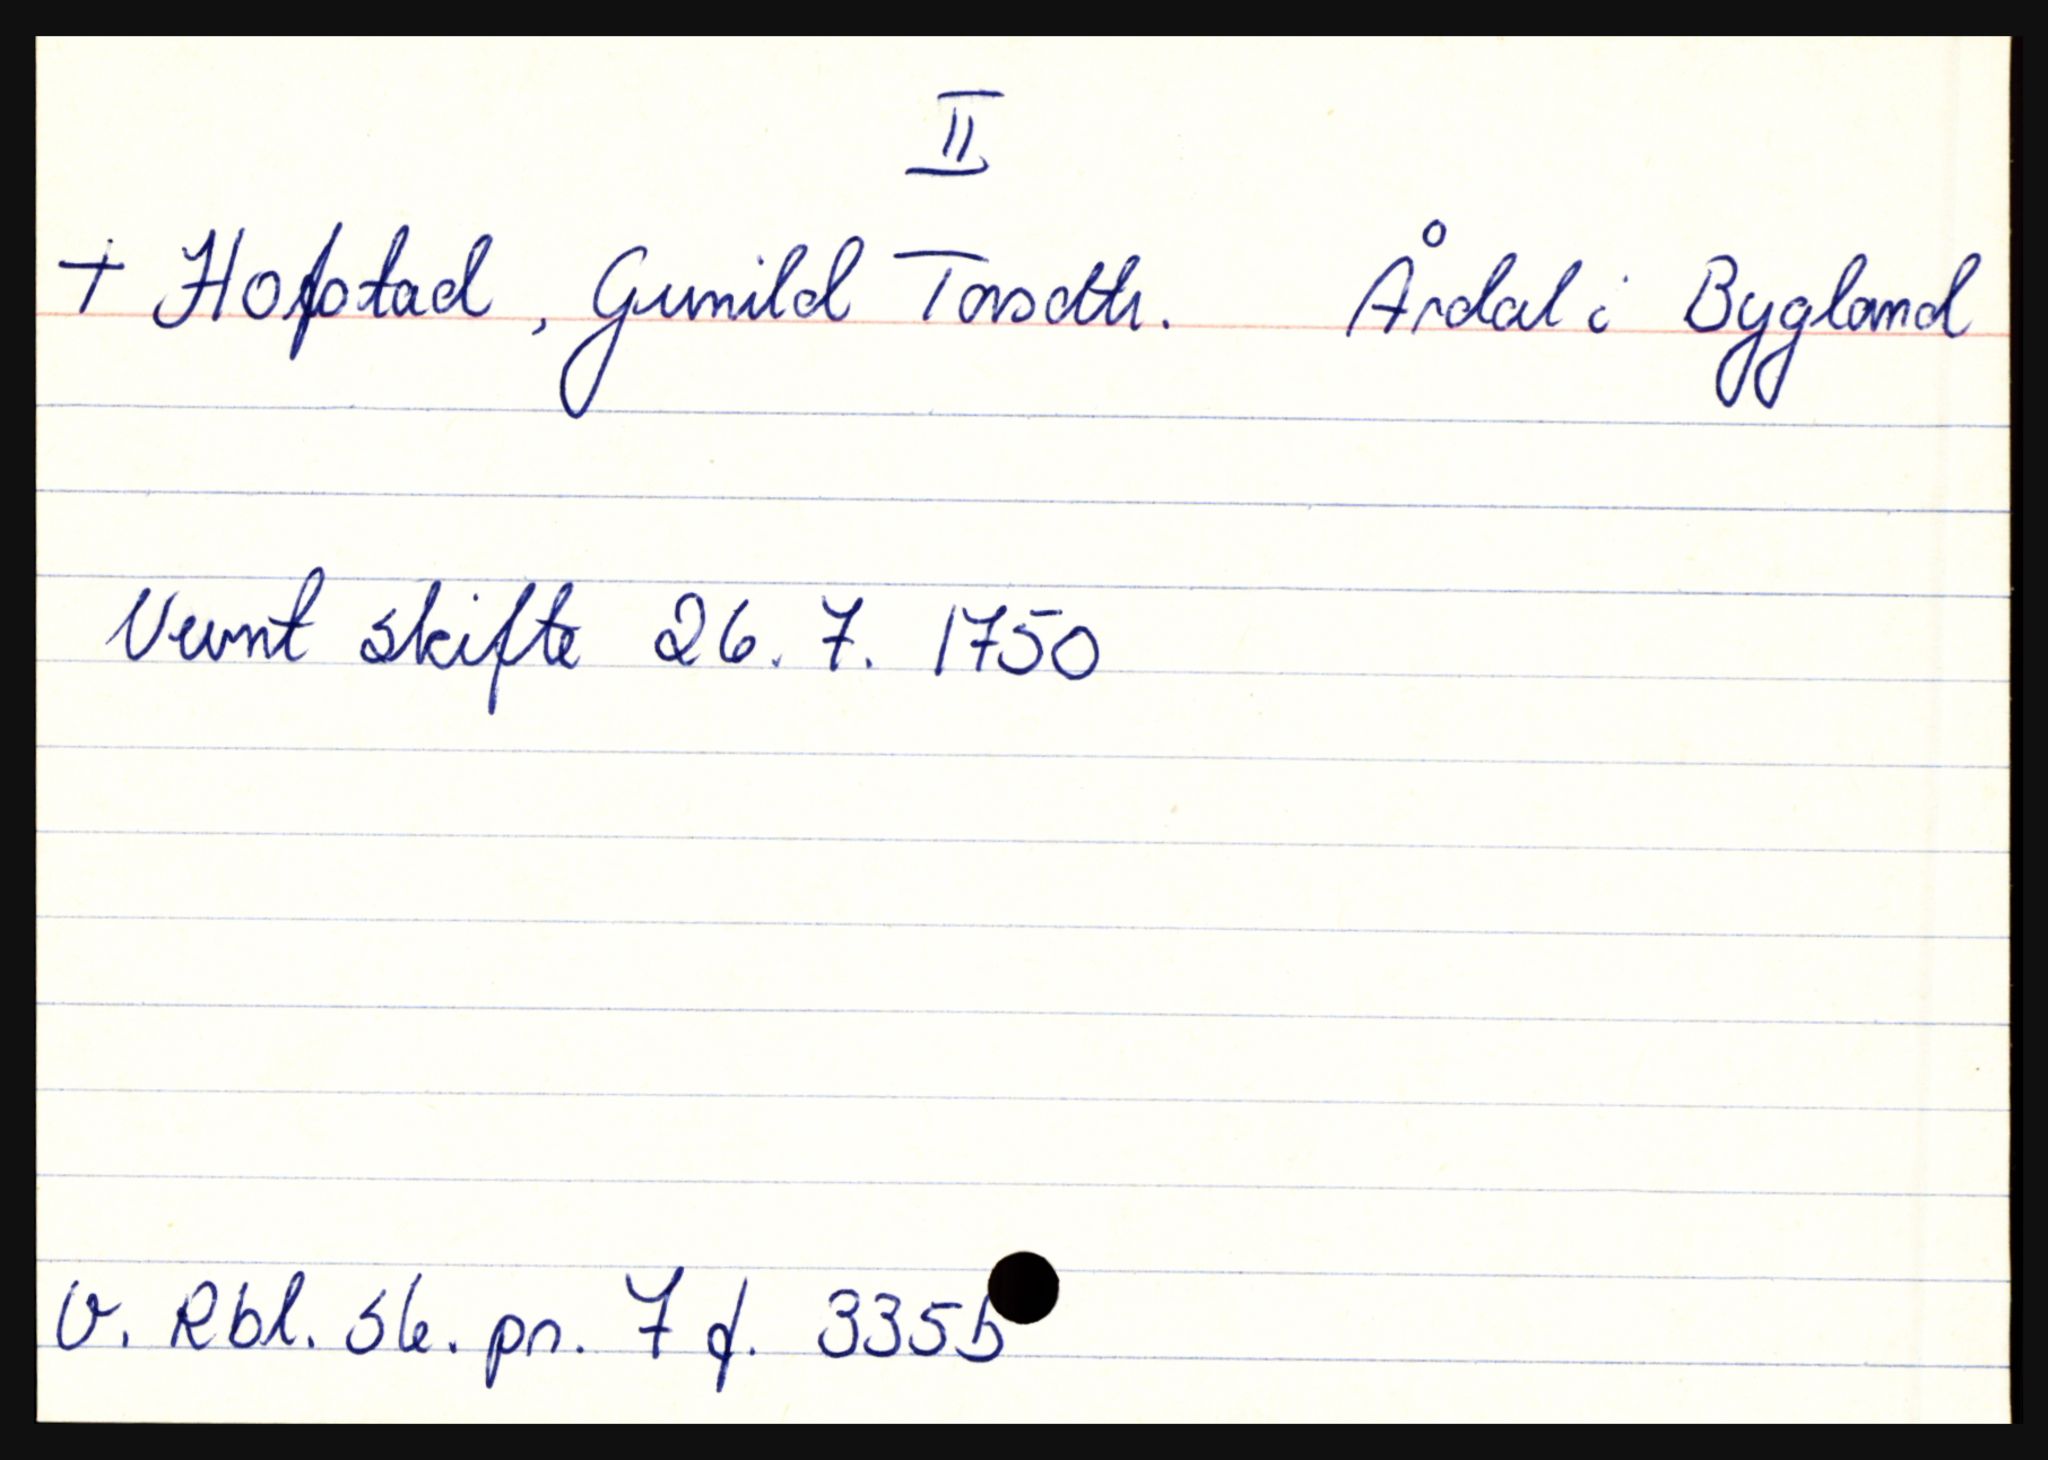 II
+ Hofstad, Gunild Torsdtr. Årdal i Bygland
Uvent skifte 26. 7. 1750
V. Rbl. sk. pr. 7 f. 335b